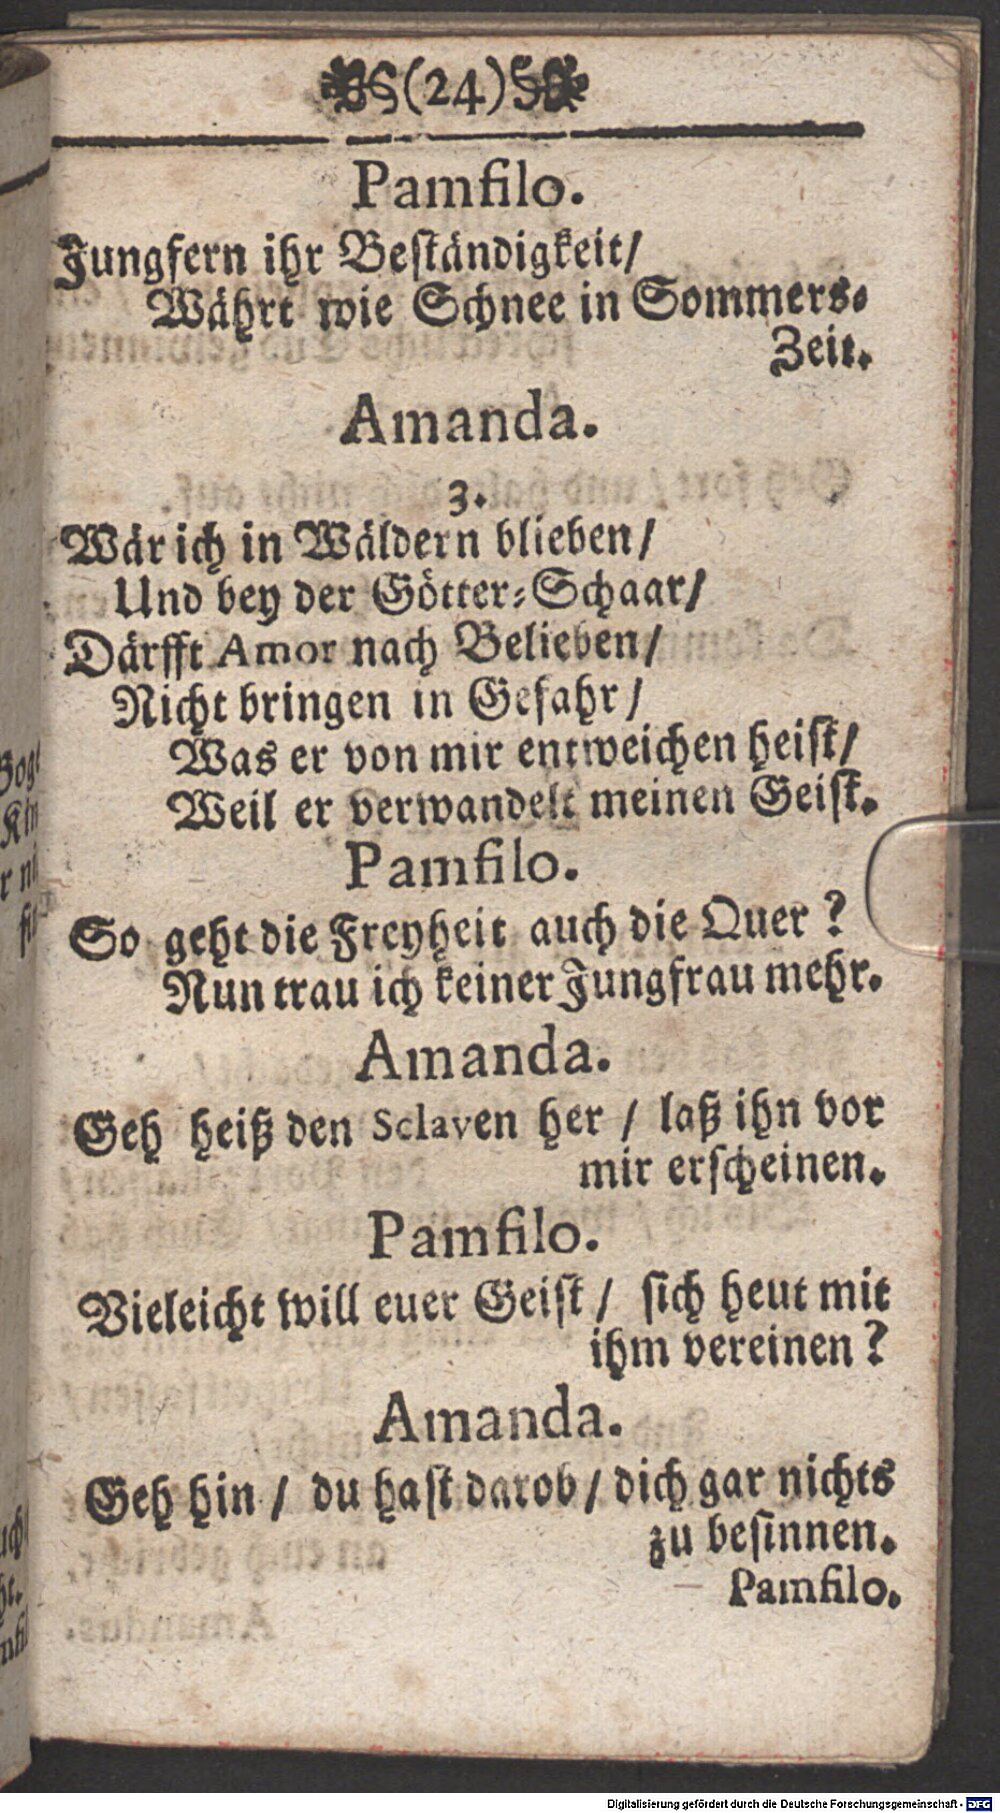 (24)
Pamfilo.
Jungfern ihr Beständigkeit/
Währt wie Schnee in Sommers-
Zeit.
Amanda.
3.
Wär ich in Wäldern blieben/
Und bey der Götter-Schaar/
Därfft Amor nach Belieben/
Nicht bringen in Gefahr/
Was er von mir entweichen heist/
Weil er verwandelt meinen Geist.
Pamfilo.
So geht die Freyheit auch die Quer?
Nun trau ich keiner Jungfrau mehr.
Amanda.
Geh heiß den Sclaven her / laß ihn vor
mir erscheinen.
Pamfilo.
Vieleicht will euer Geist / sich heut mit
ihm vereinen?
Amanda.
Geh hin / du hast darob / dich gar nichts
zu besinnen.
Pamfilo.
Digitalisierung gefördert durch die Deutsche Forschungsgemeinschaft - DFG